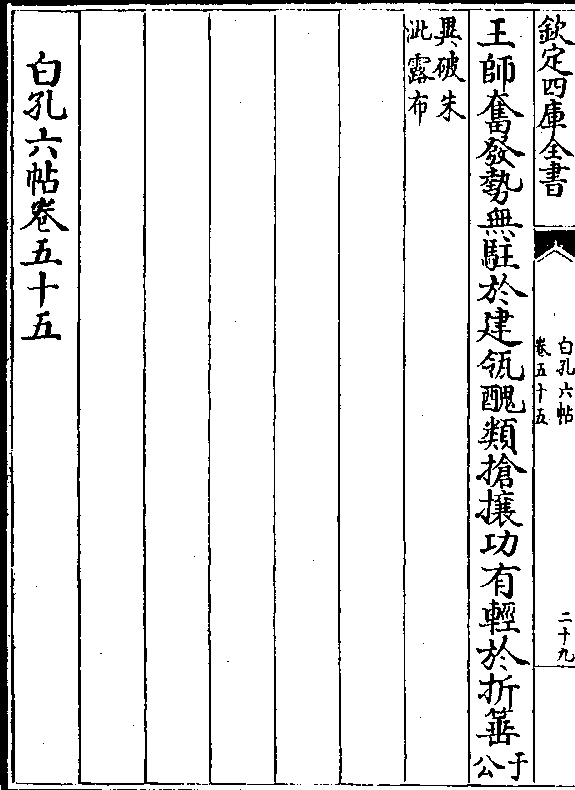 欽定四庫全書
白孔六帖
卷五十五
二十九
王師奮發勢無駐於建瓴醜類搶攘功有輕於折箠于公
異破朱
泚露布
白孔六帖卷五十五